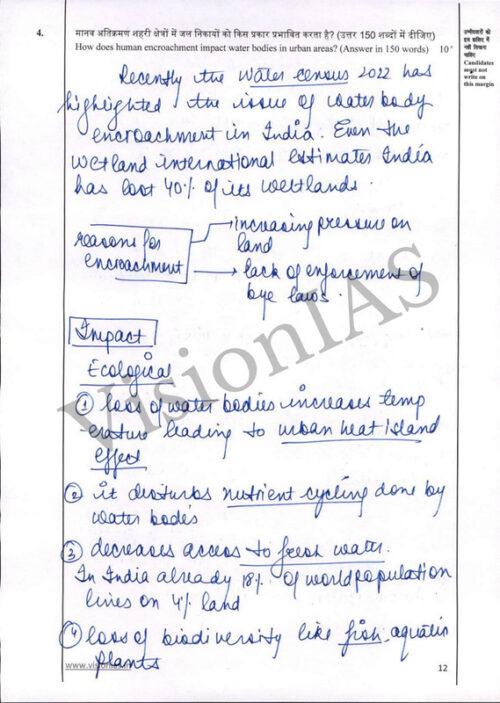 4.
मानव अतिक्रमण शहरी क्षेत्रों में जल निकायों को किस प्रकार प्रभावित करता है? (उत्तर 150 शब्दों में दीजिए)
How does human encroachment impact water bodies in urban areas? (Answer in 150 words) 10
उम्मीदवारों को
इस हाशिए में
नहीं लिखना
चाहिए
Candidates
must not
write on
this margin
Recently the water census 2022 has
highlighted the issue of water body
encroachment in India. Even the
wetland international estimates India
has lost 40% of its wetlands.
reasons for
encroachment
increasing pressure on
land
lack of enforcement of
bye laws.
Impact
Ecological
① loss of water bodies increases temp
-erature leading to urban heat island
effect
② it disturbs nutrient cycling done by
water bodies
③ decreases access to fresh water.
In India already 18% of world population
lives on 4% land
④ loss of biodiversity like fish, aquatic
plants
VisionIAS
www.visionias.in
12